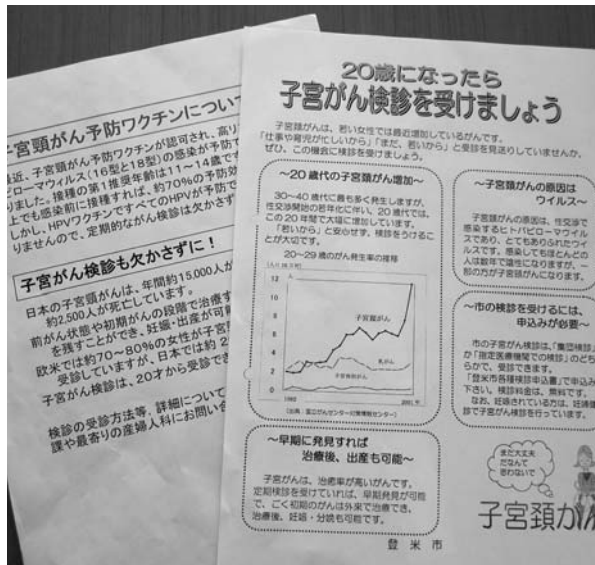 子宮頸がん予防ワクチンについ
最近、子宮頸がん予防ワクチンが認可され、高リ
ピローマウィルス（16型と18型）の感染が予防で
りました。接種の第1推奨年齢は11～14歳で
上でも感染前に接種すれば、約70％の予防効
しかし、HPVワクチンですべてのHPVが予防で
りませんので、定期的ながん検診は欠かさず
子宮がん検診も欠かさずに！
日本の子宮頸がんは、年間約15,000人が
約2,500人が死亡しています。
前がん状態や初期がんの段階で治療す
を残すことができ、妊娠・出産が可能
欧米では約70～80％の女性が子宮頸
受診していますが、日本では約2
子宮がん検診は、20才から受診でき
検診の受診方法等、詳細について
課や最寄りの産婦人科にお問い合
20歳になったら
子宮がん検診を受けましょう
子宮頸がんは、若い女性では最近増加しているがんです。
「仕事や育児が忙しいから」「まだ、若いから」と受診を見送りしていませんか。
ぜひ、この機会に検診を受けましょう。
～20歳代の子宮頸がん増加～
30～40歳代に最も多く発生しますが、
性交渉開始の若年化に伴い、20歳代では、
この20年間で大幅に増加しています。
「若いから」と安心せず、検診をうけるこ
とが大切です。
20～29歳のがん発生率の推移
12
10
8
6
4
2
0
子宮頸がん
乳がん
子宮体部がん
2001年
（出典：国立がんセンターがん対策情報センター）
～早期に発見すれば
治療後、出産も可能～
子宮がんは、治癒率が高いがんです。
定期検診を受けていれば、早期発見が可能
で、ごく初期のがんは外来で治療でき、
治療後、妊娠・分娩も可能です。
～子宮頸がんの原因は
ウイルス～
子宮頸がんの原因は、性交渉で
感染するヒトパピローマウイル
スであり、とてもありふれたウイ
ルスです。感染してもほとんどの
人は数年で陰性になりますが、一
部の方が子宮頸がんになります。
～市の検診を受けるには、
申込みが必要～
市の子宮がん検診は、「集団検診」
か「指定医療機関での検診」のどち
らかで、受診できます。
「登米市各種検診申込書」で申込み
下さい。検診料金は、無料です。
なお、妊娠されている方は、妊婦健
診で子宮がん検診を行っています。
まだ大丈夫
だなんて
思わないで
子宮頚がん
登米市